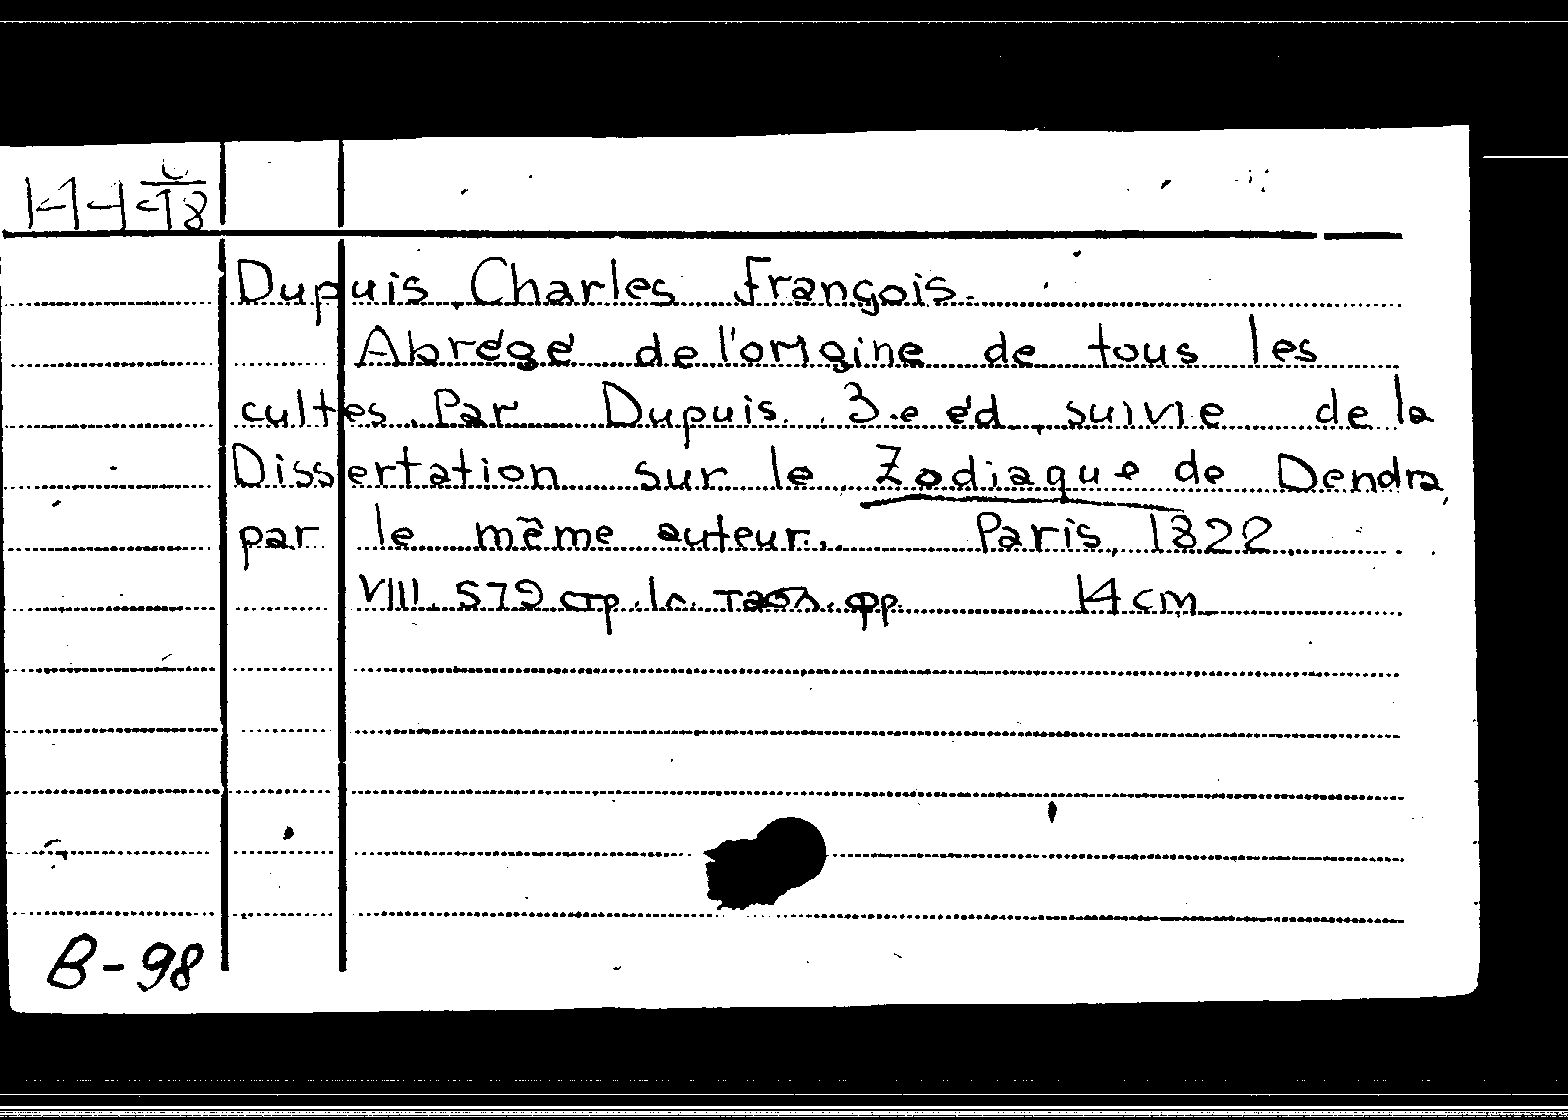 Dupuis, Charles François.
Abrégé de l'origine de tous les
cultes. Par Dupuis. 3.e éd, suivie de la
Dissertation sur le Zodiaque de Dendra,
par le même auteur. Paris, 1822
VIII. 579 стр. 1л. табл. фр. 14 cm
B-98